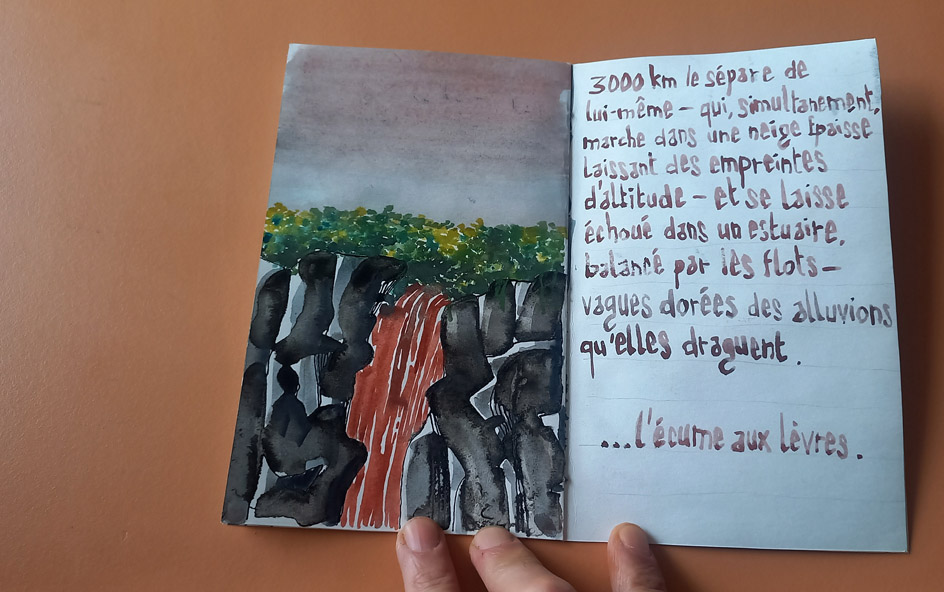 3000 km le sépare de
lui-même – qui, simultanement,
marche dans une neige Epaisse
Laissant des empreintes
d'altitude – et se laisse
échoué dans un estuaire,
balancé par les flots –
vagues dorées des alluvions
qu'elles draguent.
...l'écume aux lèvres.